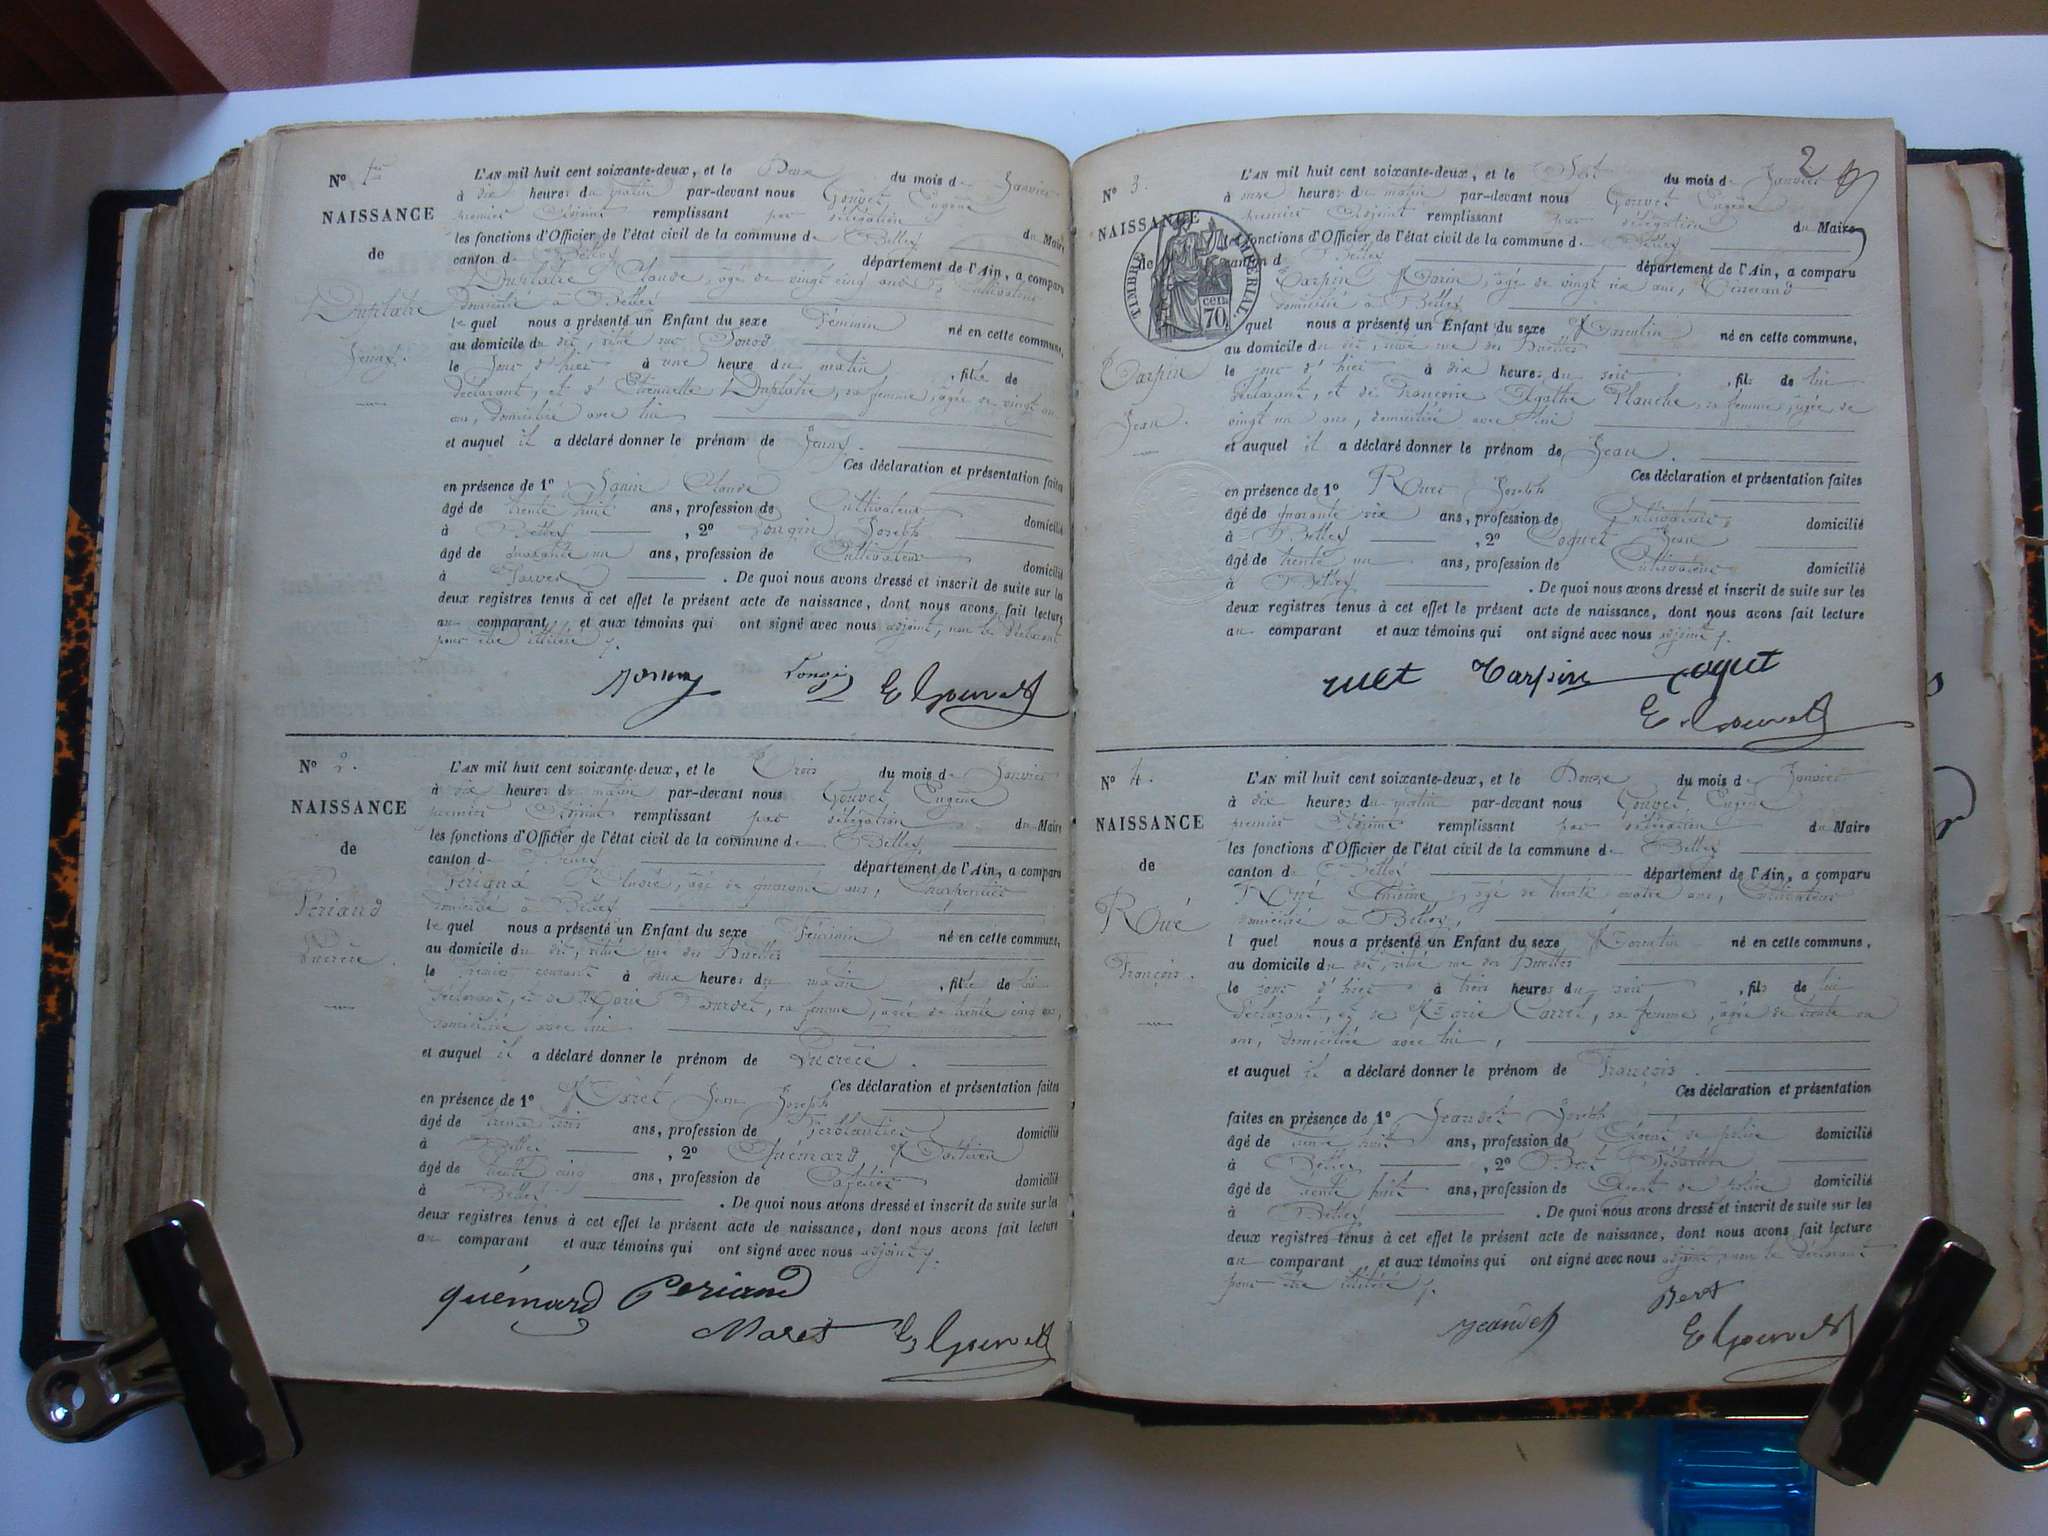 N° 1er
NAISSANCE
de
Duplatre
Jenny.
L'AN mil huit cent soixante-deux, et le Deux du mois de Janvier
à dix heures du matin par-devant nous Gouvet Eugène
premier Adjoint remplissant par délégation du Maire
les fonctions d'Officier de l'état civil de la commune de Belley
canton de Belley département de l'Ain, a comparu
Duplatre Claude, âgé de vingt cinq ans, Cultivateur
domicilié à Belley
lequel nous a présenté un Enfant du sexe Féminin né en cette commune,
au domicile du dit, situé sur
le jour d'hier à une heure du matin, fille de
déclarant, et d'Etiennette Duplatre, sa femme, âgée de vingt un
ans, domiciliée avec lui
et auquel il a déclaré donner le prénom de Jenny.
Ces déclaration et présentation faites
en présence de 1° Janin Claude
âgé de trente huit ans, profession de Cultivateur domicilié
à Belley, 2° Longin Joseph
âgé de quarante un ans, profession de Cultivateur domicilié
à. De quoi nous avons dressé et inscrit de suite sur les
deux registres tenus à cet effet le présent acte de naissance, dont nous avons fait lecture
au comparant, et aux témoins qui ont signé avec nous adjoint, non le déclarant
pour être illitéré
Longin E Gouvet
N° 2.
NAISSANCE
de
Périand
Lucrèce.
L'AN mil huit cent soixante-deux, et le Trois du mois de Janvier
à dix heures du matin par-devant nous Gouvet Eugène
premier Adjoint remplissant par délégation du Maire
les fonctions d'Officier de l'état civil de la commune de Belley
canton de Belley département de l'Ain, a comparu
Périand, âgé de quarante ans, Charpentier
domicilié à Belley
lequel nous a présenté un Enfant du sexe Féminin né en cette commune,
au domicile du dit, situé rue des
le premier courant à deux heures du matin, fille de lui
déclarant, et de Marie Bourdet, sa femme, âgée de trente cinq ans,
domiciliée avec lui
et auquel il a déclaré donner le prénom de Lucrèce.
Ces déclaration et présentation faites
en présence de 1° Maret Jean Joseph
âgé de trente trois ans, profession de Ferblantier domicilié
à Belley, 2° Quémard
âgé de trente cinq ans, profession de Cafetier domicilié
à Belley. De quoi nous avons dressé et inscrit de suite sur les
deux registres tenus à cet effet le présent acte de naissance, dont nous avons fait lecture
au comparant et aux témoins qui ont signé avec nous adjoint
quémard Periand
Maret E Gouvet
2
N° 3.
NAISSANCE
de
TIMBRE IMPERIAL.
70 cen.
Tarpin
Jean.
L'AN mil huit cent soixante-deux, et le Sept du mois de Janvier
à onze heures du matin par-devant nous Gouvet Eugène
premier Adjoint remplissant par délégation du Maire
les fonctions d'Officier de l'état civil de la commune de Belley
canton de Belley département de l'Ain, a comparu
Tarpin Marin, âgé de vingt six ans, Tisserand
domicilié à Belley
lequel nous a présenté un Enfant du sexe Masculin né en cette commune,
au domicile du dit, situé rue des
le jour d'hier à dix heures du soir, fils de lui
déclarant, et de Françoise Agathe Planche, sa femme, âgée de
vingt un ans, domiciliée avec lui
et auquel il a déclaré donner le prénom de Jean.
Ces déclaration et présentation faites
en présence de 1° Joseph
âgé de quarante six ans, profession de Cultivateur domicilié
à Belley, 2° Coquet Jean
âgé de trente un ans, profession de Cultivateur domicilié
à Belley. De quoi nous avons dressé et inscrit de suite sur les
deux registres tenus à cet effet le présent acte de naissance, dont nous avons fait lecture
au comparant et aux témoins qui ont signé avec nous adjoint
Tarpin coquet
E Gouvet
N° 4.
NAISSANCE
de
Roué
François.
L'AN mil huit cent soixante-deux, et le Douze du mois de Janvier
à dix heures du matin par-devant nous Gouvet Eugène
premier Adjoint remplissant par délégation du Maire
les fonctions d'Officier de l'état civil de la commune de Belley
canton de Belley département de l'Ain, a comparu
Roué Antoine, âgé de trente quatre ans, Cultivateur
domicilié à Belley,
lequel nous a présenté un Enfant du sexe Masculin né en cette commune,
au domicile du dit, situé rue des
le jour d'hier à trois heures du soir, fils de lui
déclarant, et de Marie Carrel, sa femme, âgée de trente un
ans, domiciliée avec lui,
et auquel il a déclaré donner le prénom de François.
Ces déclaration et présentation
faites en présence de 1° Jeandet Joseph
âgé de trente huit ans, profession de Agent de police domicilié
à Belley, 2° Bert Sébastien
âgé de trente huit ans, profession de Agent de police domicilié
à Belley. De quoi nous avons dressé et inscrit de suite sur les
deux registres tenus à cet effet le présent acte de naissance, dont nous avons fait lecture
au comparant, et aux témoins qui ont signé avec nous adjoint, non le déclarant
pour être illitéré
Jeandet Bert
E Gouvet